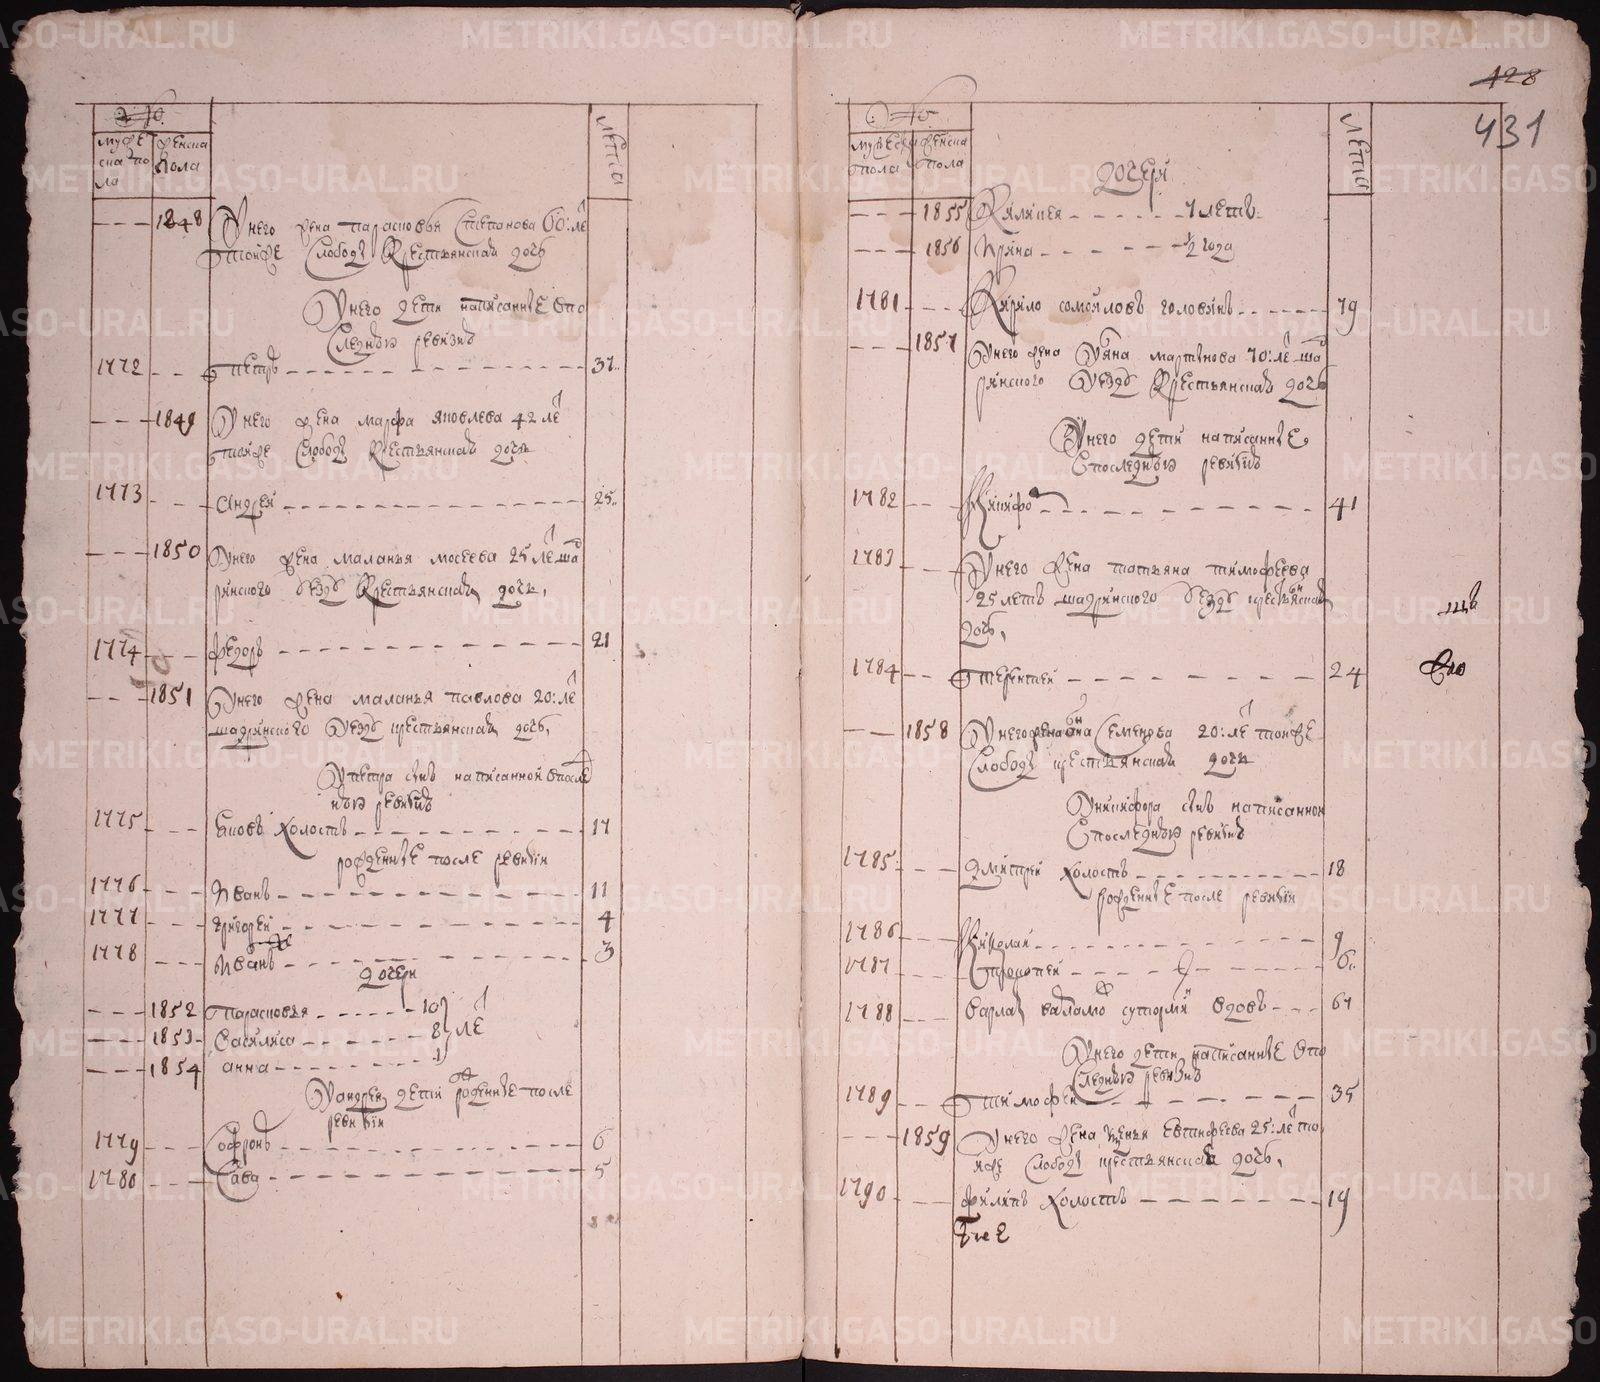 428
431
№
муже
ска по
ла
женска
пола
лета
1848 У него жена парасковья степанова 60: ле
тойже слободы крестьянская дочь
У него дети написанные впо
следнюю ревизию
1772 петръ 37
1849 У него жена марфа яковлева 42 ле
тойже слободы крестьянская дочь
1773 андрей 25
1850 У него жена маланья мосеева 25 ле шад
ринского уезду крестьянская дочь,
1774 федоръ 21
1851 У него жена маланья павлова 20: ле
шадринского уезду крестьянская дочь,
У петра сынъ написанной впосле
нюю ревизию
1775 яковъ холостъ 17
рожденные после ревизии
1776 Иванъ 11
1777 григорей 4
1778 Иванъ же 3
дочери
1852 парасковья 10
1853 василиса 8 ле
1854 анна 1
У андрея дети рожденные после
ревизии
1779 софронъ 6
1780 сава 5
№
мужеска
пола
женска
пола
лета
дочери
1855 7 летъ
1856 Ирина 1/2 года
1781 Кирило самойловъ головинъ 79
1857 У него жена уляна мартинова 70: ле шад
ринского уезду крестьянская дочь
У него дети написанные
впоследнюю ревизию
1782 Никифоръ 41
1783 У него жена татьяна тимофеева
25 летъ шадринского уезду крестьянская
дочь,
1784 терентей 24
1858 У него жена анна семенова 20: ле тойже
слободы крестьянская дочь
У никифора сынъ написанной
впоследнюю ревизию
1785 дмитрей холостъ 18
рожденные после ревизии
1786 Николай 9
1787 6
1788 варлам сутормин вдовъ 67
У него дети написанные впо
следнюю ревизию
1789 тимофей 35
1859 У него жена ксенья евтифеева 25: ле то
йже слободы крестьянская дочь,
1790 филипъ холостъ 19